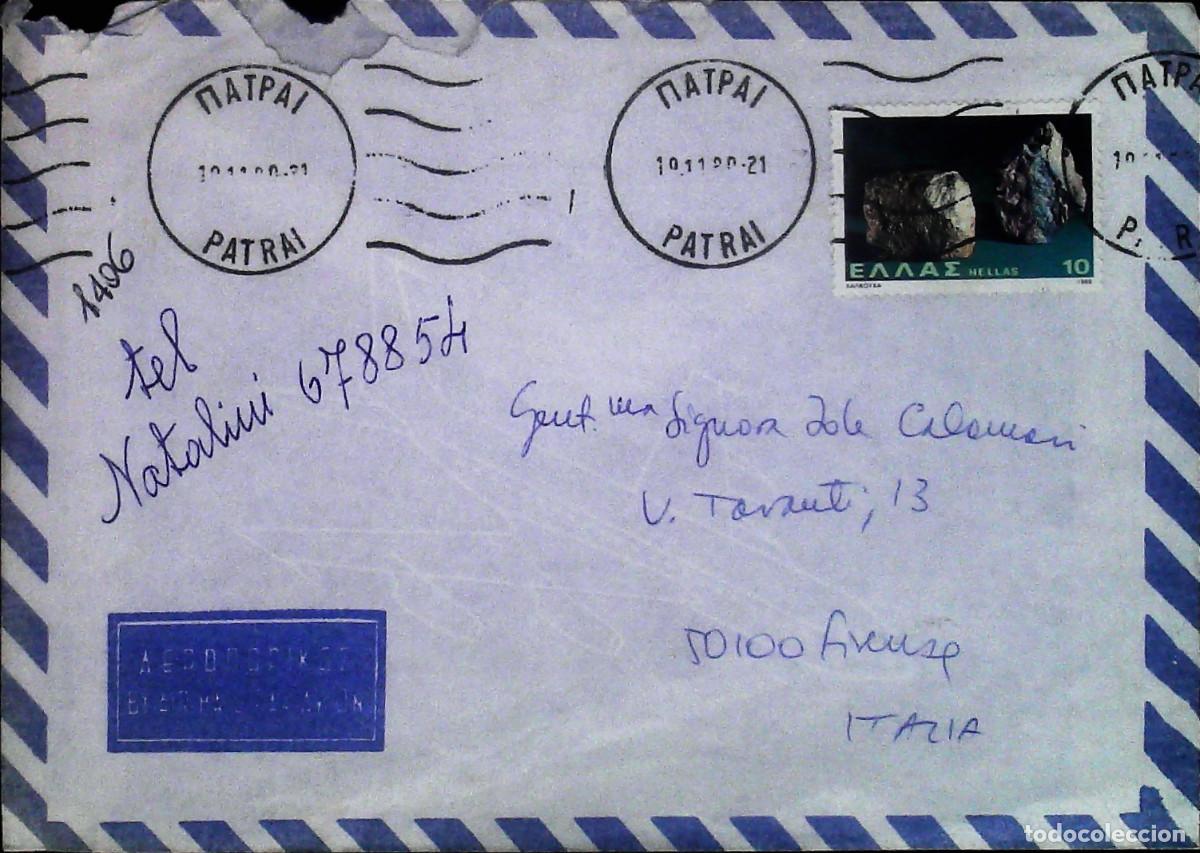 ΠΑΤΡΑΙ
19.11.80-21
PATRAI
ΠΑΤΡΑΙ
19.11.80-21
PATRAI
ΠΑΤΡΑ
19
P R
ΕΛΛΑΣ HELLAS 10
1980
8406
tel
Natalini 678854
Gent.ma Signora Iole Calamari
V. Tavanti, 13
50100 Firenze
ITALIA
ΑΕΡΟΠΟΡΙΚΩΣ
todocoleccion